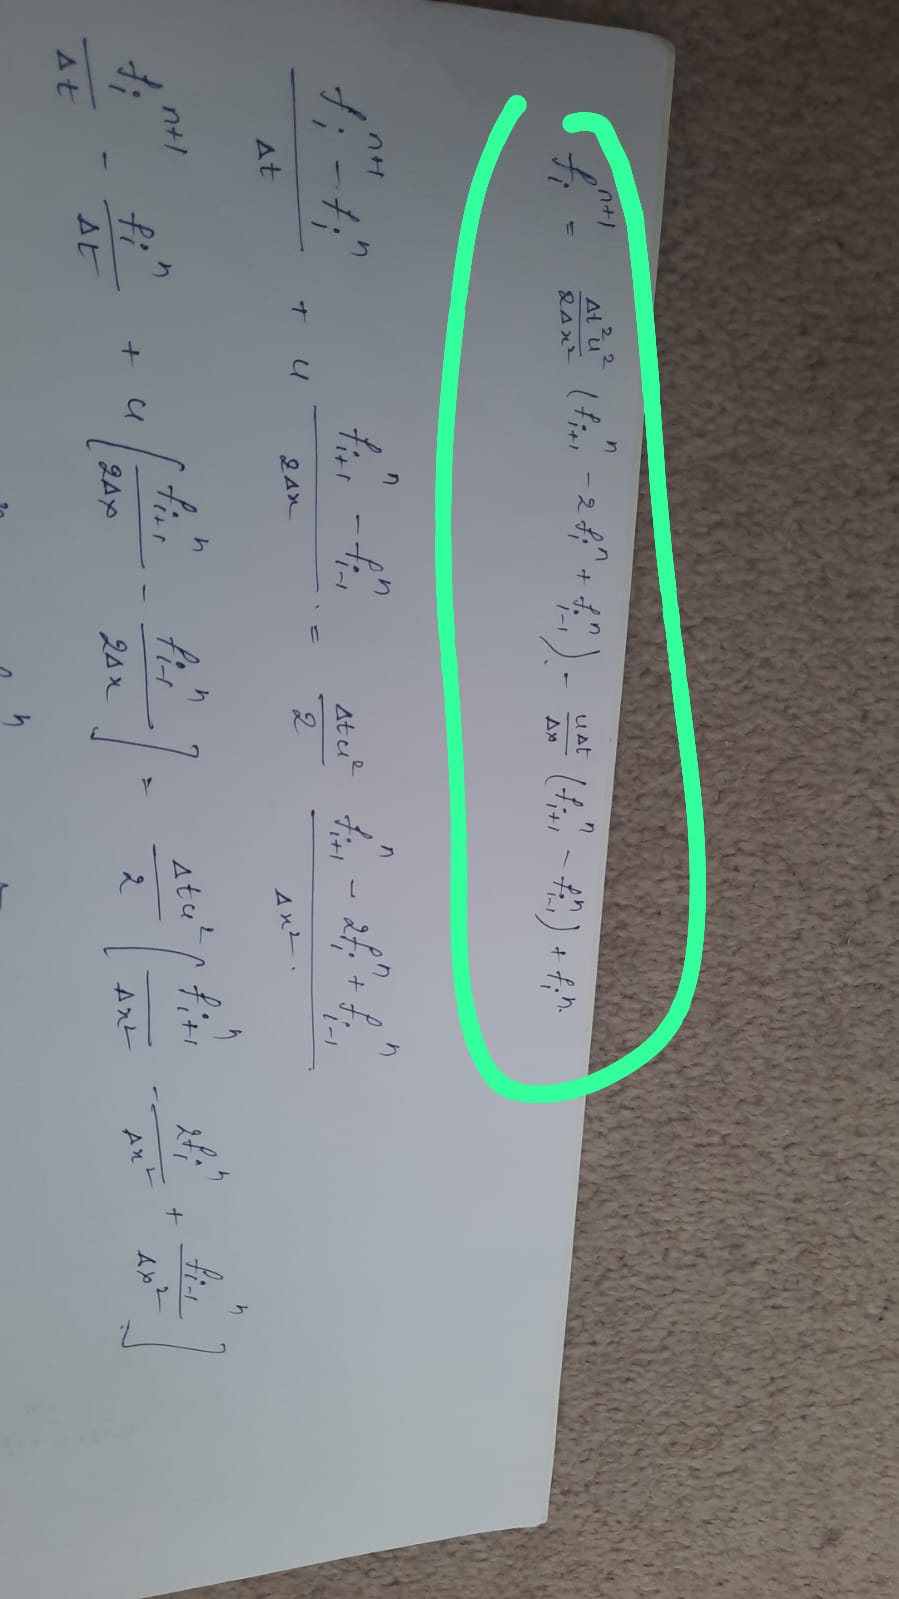 f_i^{n+1} = \frac{Δt^2 u^2}{2Δx^2} (f_{i+1}^n - 2 f_i^n + f_{i-1}^n) . - \frac{uΔt}{Δx} (f_{i+1}^n - f_{i-1}^n) + f_i^n.
\frac{f_i^{n+1} - f_i^n}{Δt} + u \frac{f_{i+1}^n - f_{i-1}^n}{2Δx} . = \frac{Δtu^2}{2} \frac{f_{i+1}^n - 2f_i^n + f_{i-1}^n}{Δx^2 .}
\frac{f_i^{n+1}}{Δt} - \frac{f_i^n}{Δt} + u [\frac{f_{i+1}^n}{2Δx} - \frac{f_{i-1}^n}{2Δx}] = \frac{Δtu^2}{2} [\frac{f_{i+1}^n}{Δx^2} - \frac{2f_i^n}{Δx^2} + \frac{f_{i-1}^n}{Δx^2}]